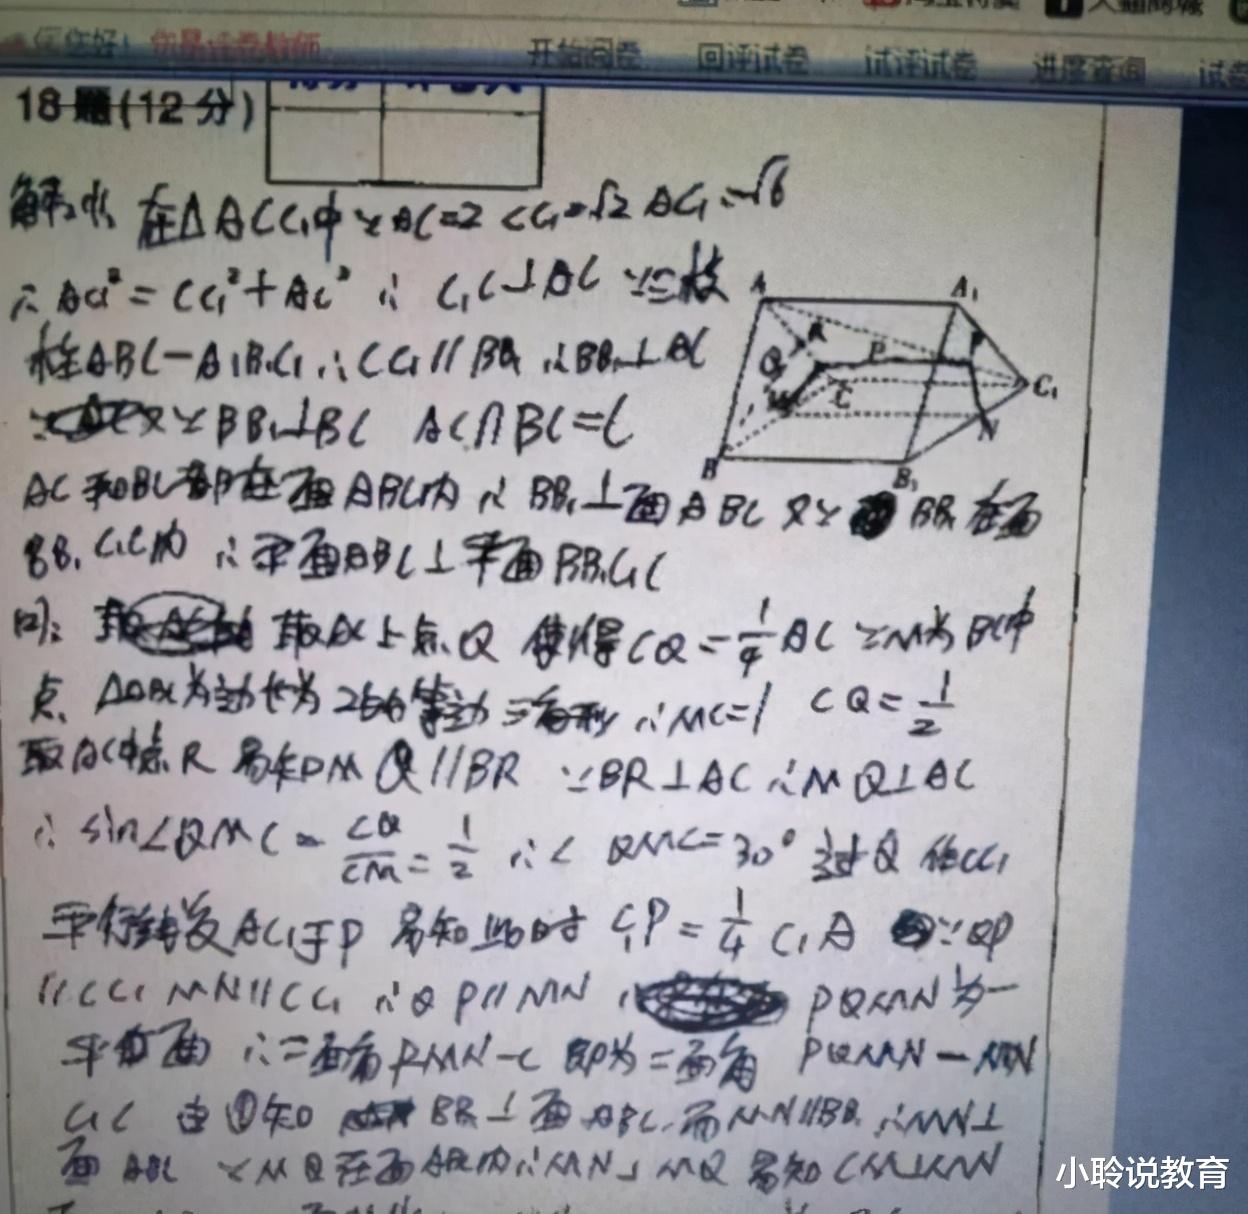 你是试卷教师
开始阅卷 回评试卷 试评试卷 进度查询 试卷
18题(12分)
解: 在△ACC₁中∵AC=2 CC₁=√2 AC₁=√6
∴AC₁²=CC₁²+AC² ∴C₁C⊥AC ∵三棱
柱ABC-A₁B₁C₁∴CC₁∥BB₁∴BB₁⊥AC
又∵BB₁⊥BC AC∩BC=C
AC和BC都在面ABC内∴BB₁⊥面ABC又∵BB₁在面
BB₁C₁C内∴平面ABC⊥平面BB₁C₁C
取AC上点Q使得CQ=1/4AC∵M为BC中
点、△ABC为边长为2的等边三角形∴MC=1 CQ=1/2
取AC中点R易知MQ∥BR∵BR⊥AC∴MQ⊥AC
∴sin∠QMC=CQ/CM=1/2∴∠QMC=30°过Q作CC₁
平行线交AC₁于P易知此时C₁P=1/4C₁A∵QP
∥CC₁ MN∥CC₁∴QP∥MN PQMN为一
平面∴二面角PMN-C即为二面角PQMN-MN
C₁C 由①知BB₁⊥面ABC,而MN∥BB₁∴MN⊥
面ABC∵MQ在面ABC内∴MN⊥MQ易知CM⊥MN
A
A₁
R
P
Q
C
C₁
N
B
B₁
小聆说教育